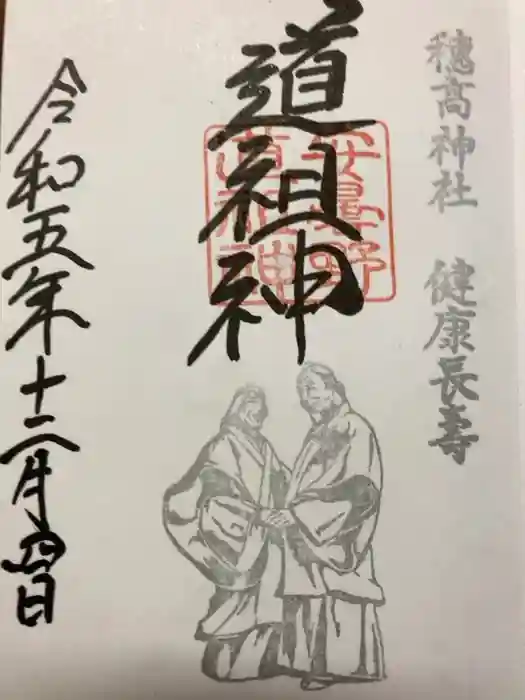 穂高神社 健康長寿
道祖神
安曇野
道祖神
令和五年十二月四日